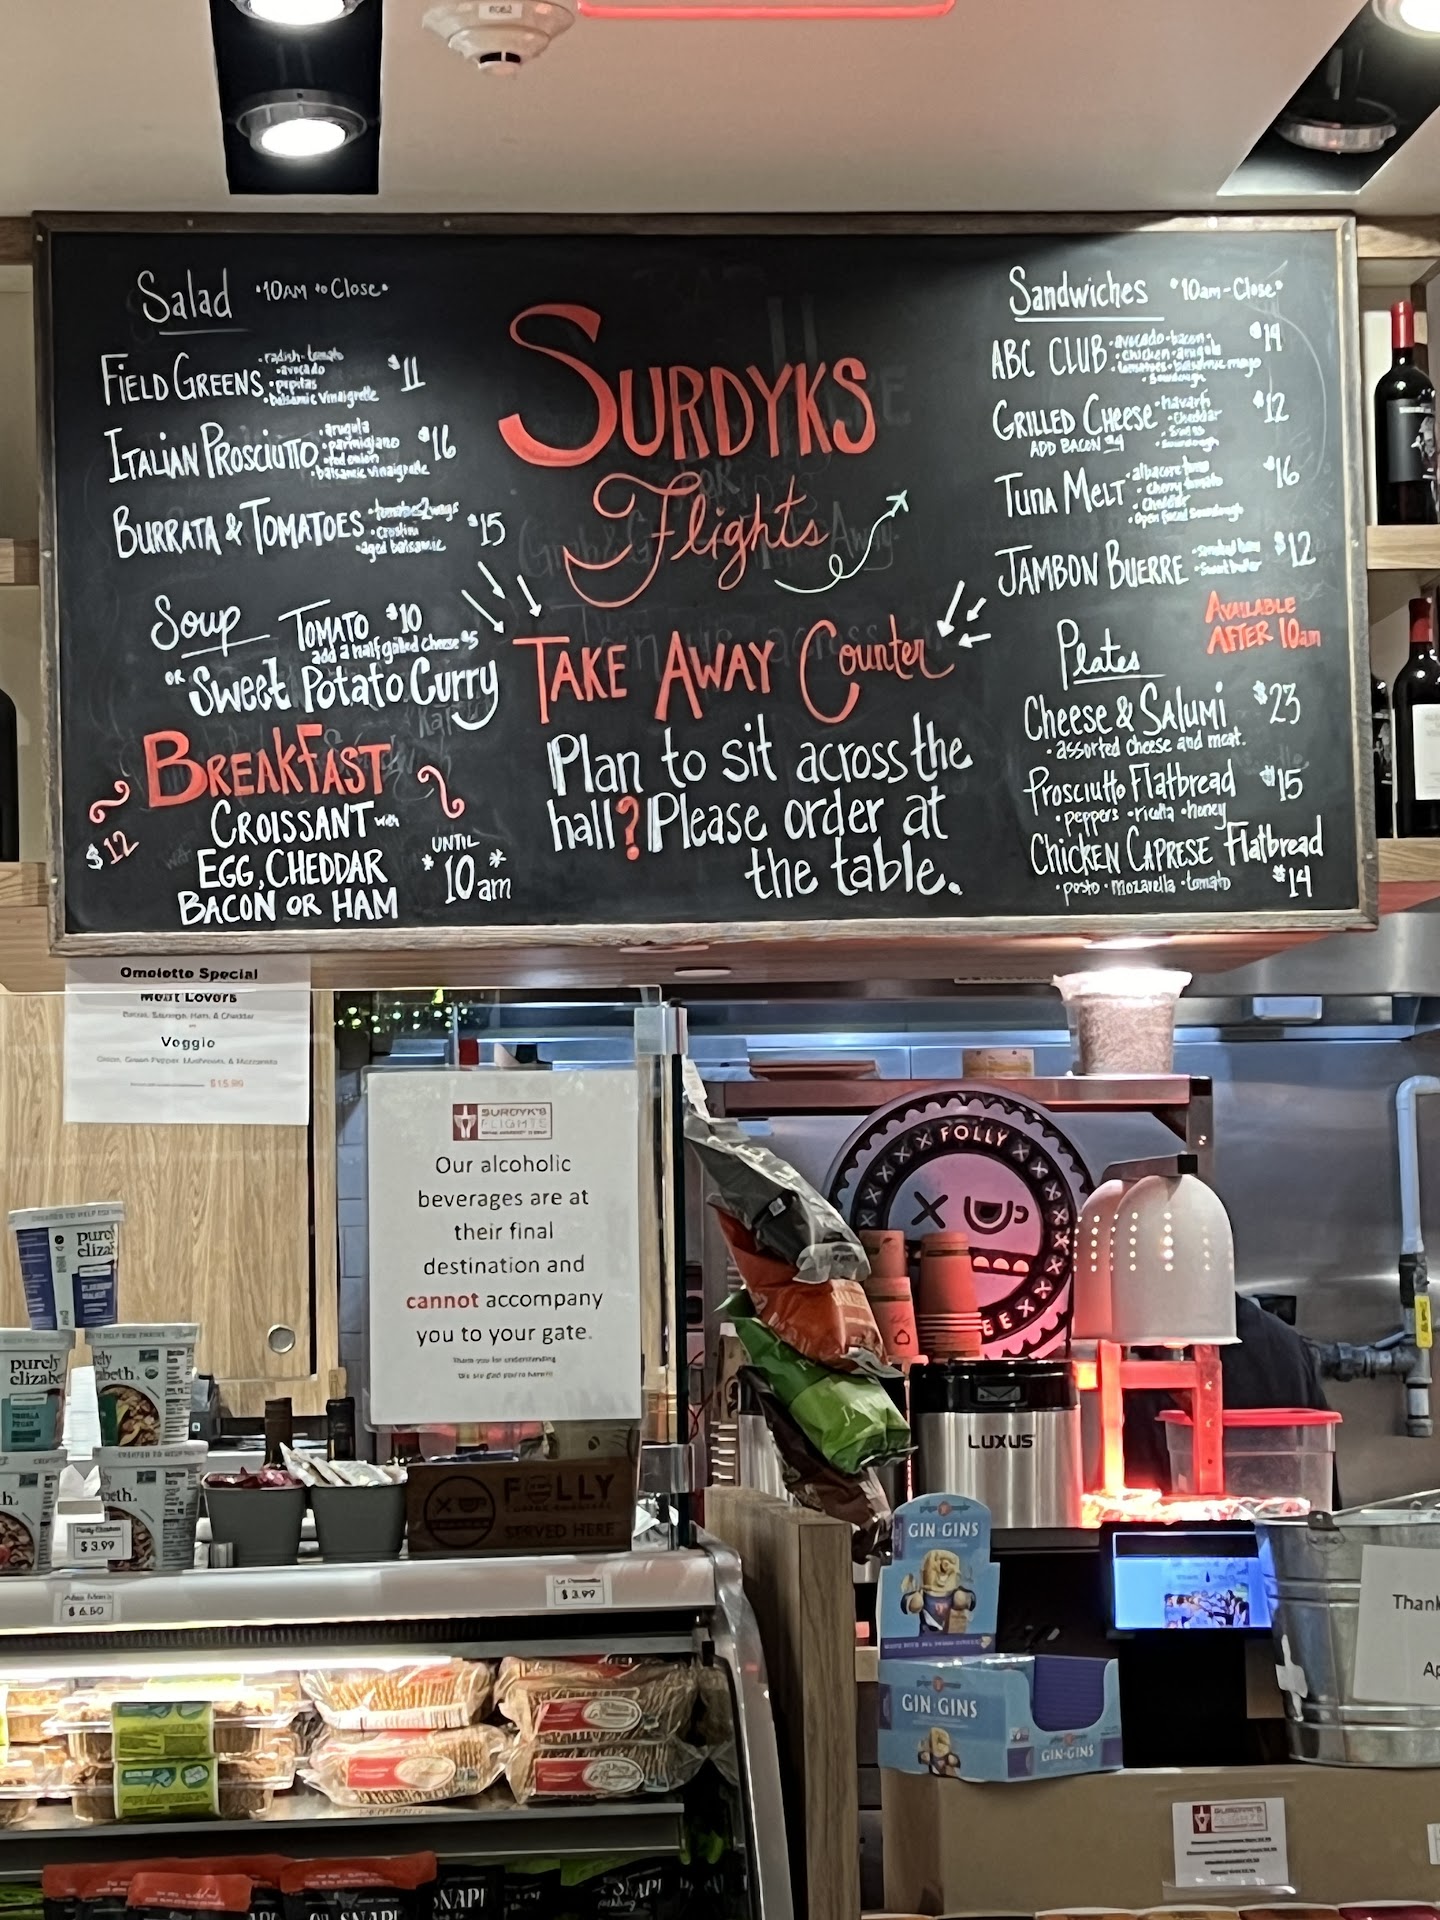 Salad •10AM to Close•
FIELD GREENS •radish•tomato $11
•avocado
•pepitas
•balsamic vinaigrette
ITALIAN PROSCIUTTO •arugula $16
•parmigiano
•red onion
•balsamic vinaigrette
BURRATA & TOMATOES •tomatoes 2 ways $15
•Crostini
•aged balsamic
Soup TOMATO $10
add a half grilled cheese $5
OR Sweet Potato Curry
BREAKFAST
$12
CROISSANT with
EGG, CHEDDAR
BACON OR HAM
UNTIL
*10am*
SURDYKS
Flights
TAKE AWAY Counter
Plan to sit across the
hall? Please order at
the table.
Sandwiches •10am-Close•
ABC CLUB •avocado•bacon• $14
•chicken•arugula
tomatoes•balsamic mayo
•Sourdough
GRILLED CHEESE •havarti $12
•Cheddar
•Swiss
•Sourdough
ADD BACON $4
TUNA MELT •albacore tuna $16
•Cherry tomato
•Cheddar
•Open faced Sourdough
JAMBON BUERRE •Smoked ham $12
•Sweet butter
AVAILABLE
AFTER 10am
Plates
Cheese & SALUMI $23
•assorted cheese and meat.
Prosciutto Flatbread $15
•peppers •ricotta •honey
CHICKEN CAPRESE Flatbread
•pesto •mozarella •tomato $14
Omelette Special
Meat Lovers
Bacon, Sausage, Ham, & Cheddar
Veggie
Onion, Green Pepper, Mushroom, & Mozzarella
$15.99
SURDYK'S
FLIGHTS
Our alcoholic
beverages are at
their final
destination and
cannot accompany
you to your gate.
Thank you for understanding
We are glad you're here!!!
FOLLY
LUXUS
purely
elizabeth.
purely
elizabeth.
$ 3.99
FOLLY
SERVED HERE
$ 6.50
$ 3.99
GIN·GINS
GIN·GINS
GIN·GINS
Thank
SURDYK'S
FLIGHTS
SNAP!